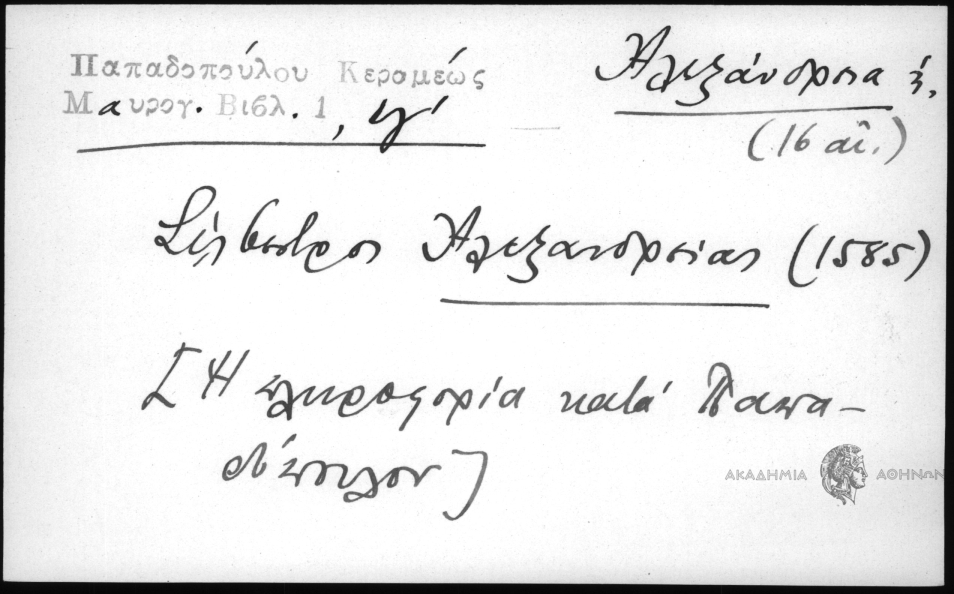 Παπαδοπούλου Κεραμέως
Μαυρογ. Βιβλ. 1, γ'
Ἀλεξάνδρεια ἡ.
(16 αἰ.)
Σίλβεστρος Ἀλεξανδρείας (1585)
[Ἡ πληροφορία κατὰ Παπα-
δόπουλον]
ΑΚΑΔΗΜΙΑ ΑΘΗΝΩΝ